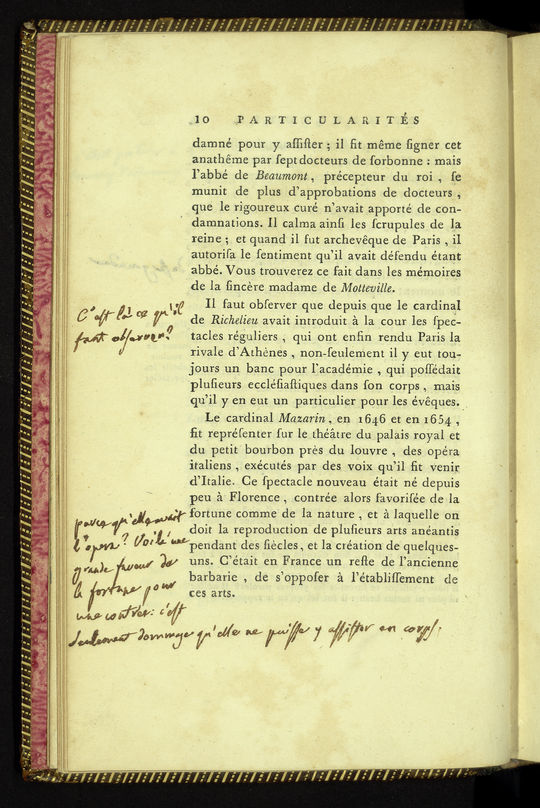 10 PARTICULARITÉS
damné pour y aſſiſter ; il fit même ſigner cet
anathême par ſept docteurs de ſorbonne : mais
l'abbé de Beaumont , précepteur du roi , ſe
munit de plus d'approbations de docteurs ,
que le rigoureux curé n'avait apporté de con-
damnations. Il calma ainſi les ſcrupules de la
reine ; et quand il fut archevêque de Paris , il
autoriſa le ſentiment qu'il avait défendu étant
abbé. Vous trouverez ce fait dans les mémoires
de la ſincère madame de Motteville.
Il faut obſerver que depuis que le cardinal
de Richelieu avait introduit à la cour les ſpec-
tacles réguliers , qui ont enfin rendu Paris la
rivale d'Athènes , non-ſeulement il y eut tou-
jours un banc pour l'académie , qui poſſédait
pluſieurs eccléſiaſtiques dans ſon corps , mais
qu'il y en eut un particulier pour les évêques.
C'est là ce qu'il
faut observer?
Le cardinal Mazarin , en 1646 et en 1654 ,
fit repréſenter ſur le théâtre du palais royal et
du petit bourbon près du louvre , des opéra
italiens , exécutés par des voix qu'il fit venir
d'Italie. Ce ſpectacle nouveau était né depuis
peu à Florence , contrée alors favoriſée de la
fortune comme de la nature , et à laquelle on
doit la reproduction de pluſieurs arts anéantis
pendant des ſiècles , et la création de quelques-
uns. C'était en France un reſte de l'ancienne
barbarie , de s'oppoſer à l'établiſſement de
ces arts.
parce qu'elle avait
l'opera? Voilà une
grande faveur de
la fortune pour
une contrée: c'est
seulement dommage qu'elle ne puisse y assister en corps.